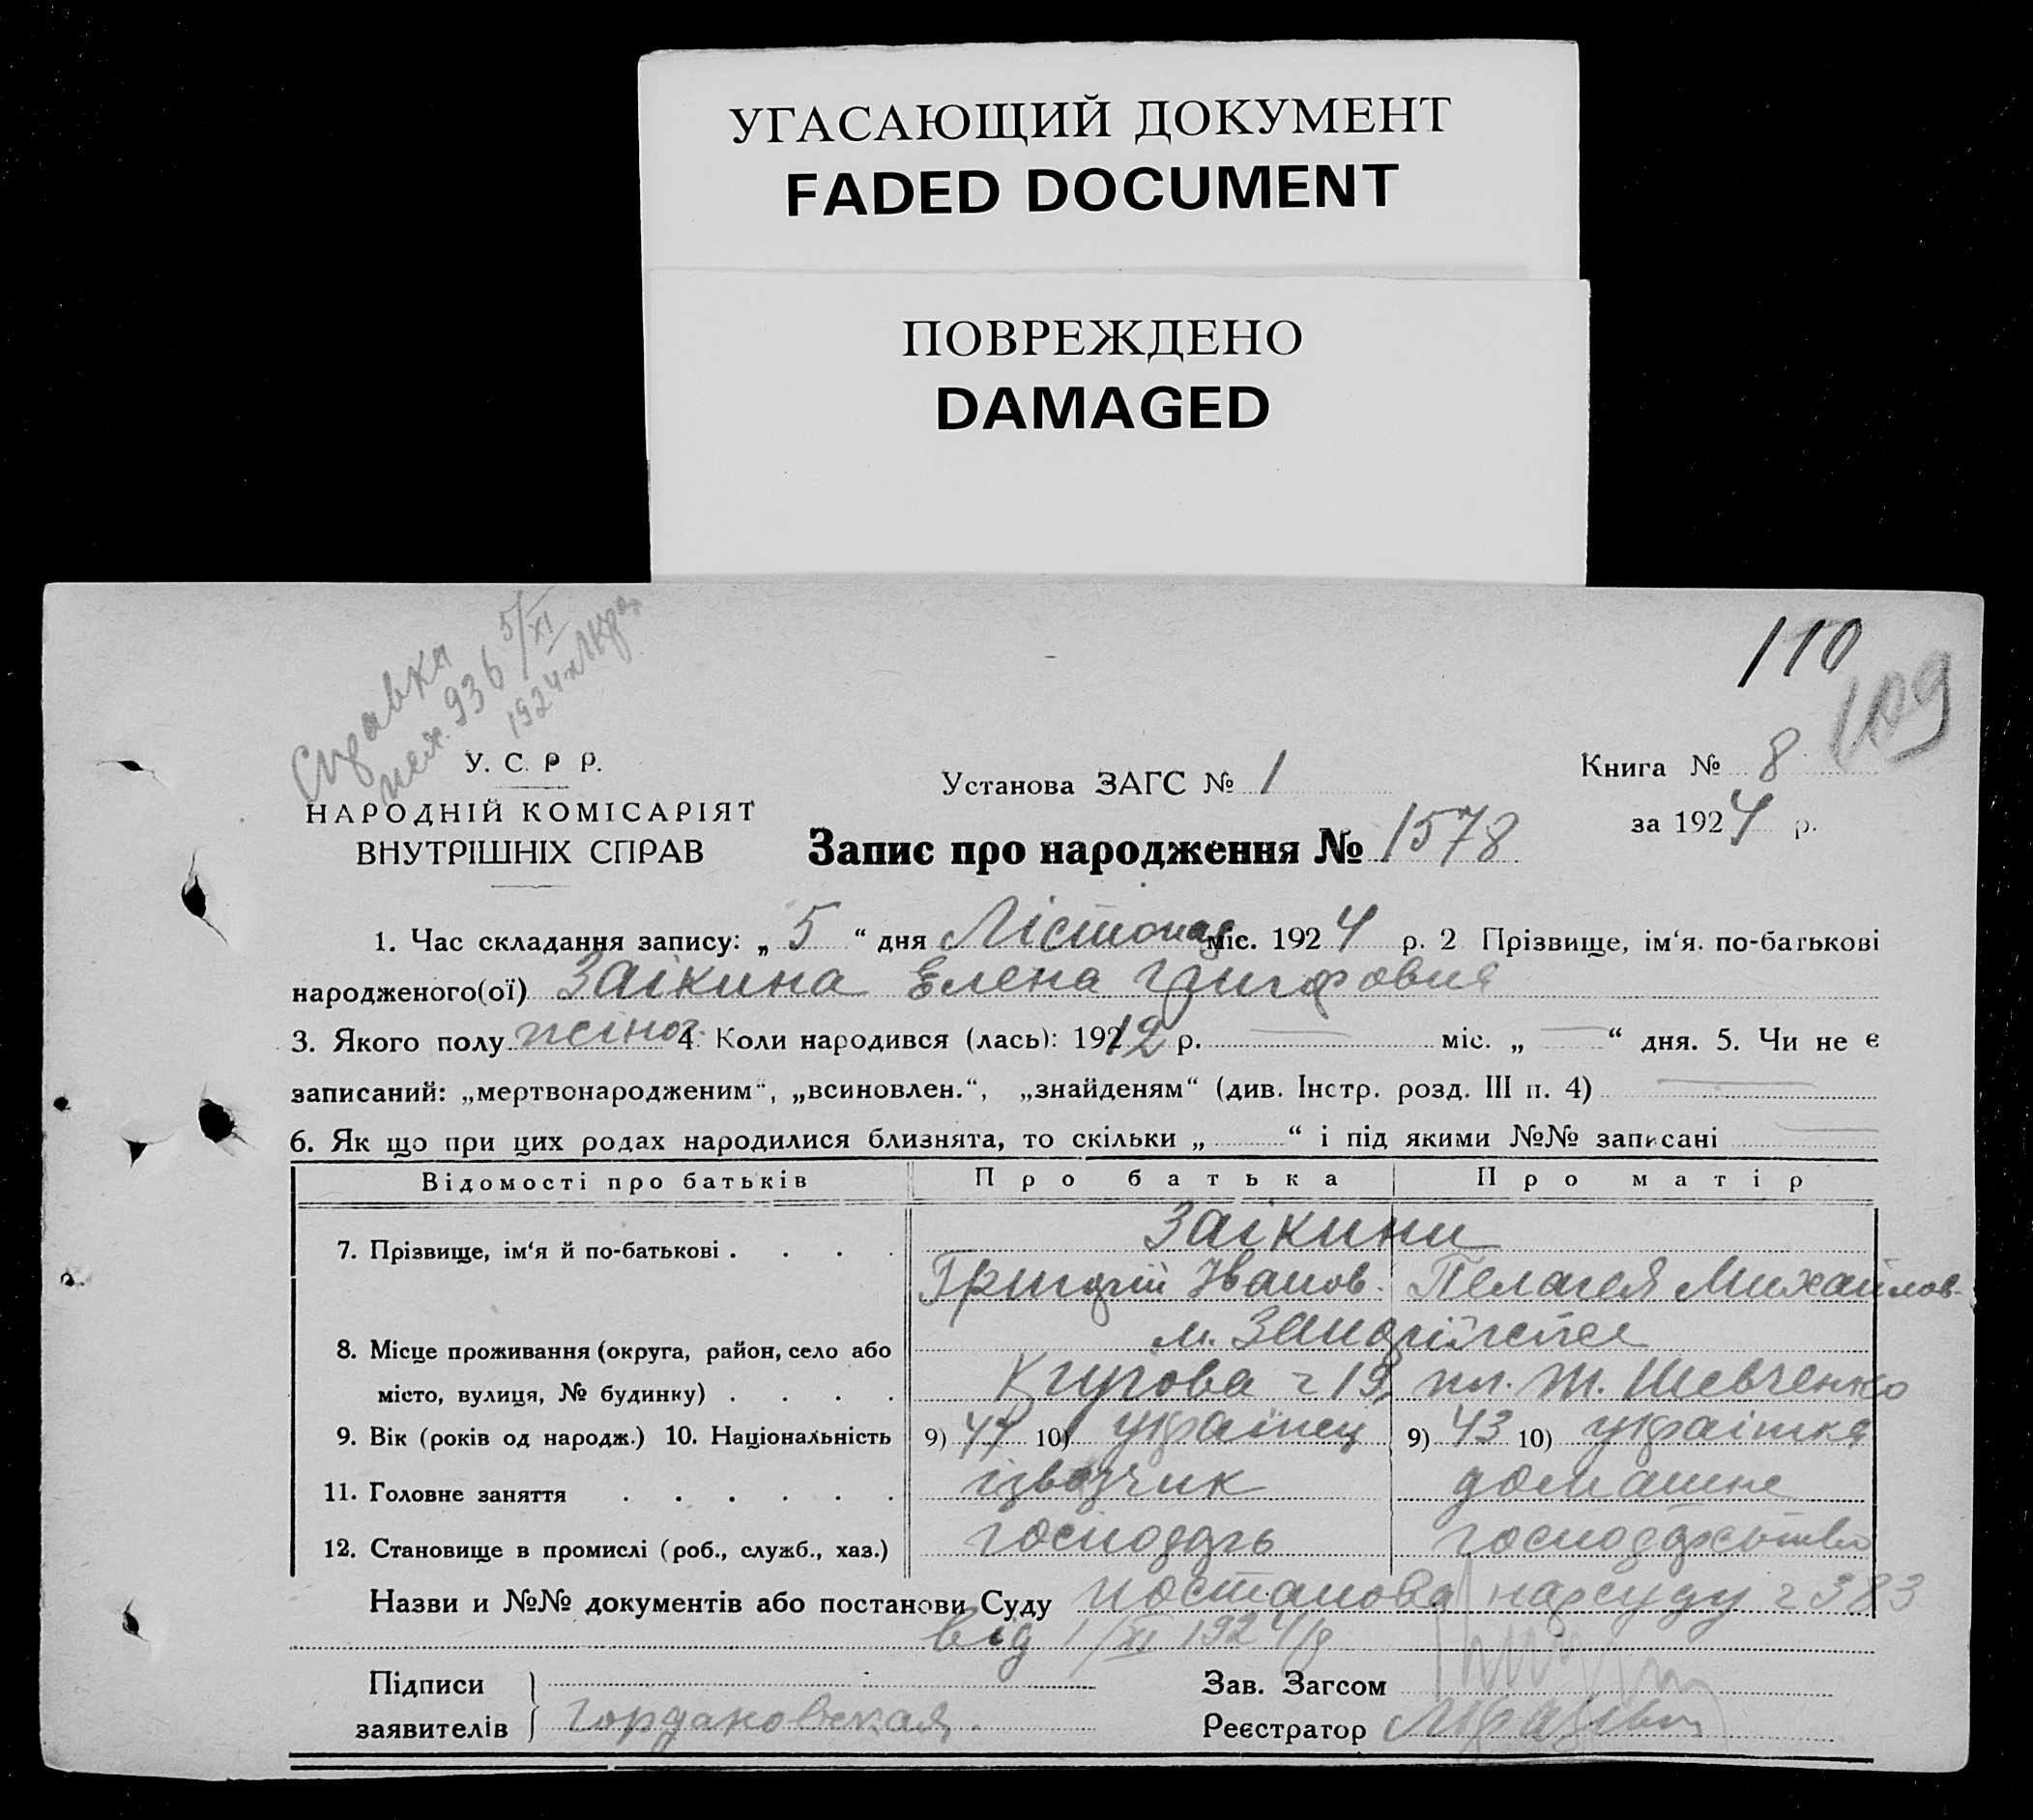 УГАСАЮЩИЙ ДОКУМЕНТ
FADED DOCUMENT
ПОВРЕЖДЕНО
DAMAGED
110
109
Справка
936 5/XI
1924
У. С. Р Р.
НАРОДНІЙ КОМІСАРІЯТ
ВНУТРІШНІХ СПРАВ
Установа ЗАГС № 1
Книга № 8
за 1924 р.
Запис про народження № 1578
1. Час складання запису: „ 5 “ дня Лістопад міс. 1924 р. 2 Прізвище, ім‘я. по-батькові
народженого(ої) Заікина Елена Григоровна
3. Якого полу жіноч. 4. Коли народився (лась): 1912 р. — міс. „ — “ дня. 5. Чи не є
записаний: „мертвонародженим“, „всиновлен.“, „знайденям“ (див. Інстр. розд. III п. 4) —
6. Як що при цих родах народилися близнята, то скільки „ “ і під якими №№ записані —
Відомості про батьків Про батька Про матір
Заікини
7. Прізвище, ім‘я й по-батькові . . . .
Григорій Іванов. Пелагея Михайлов-
м. Запоріжжя
8. Місце проживання (округа, район, село або
місто, вулиця, № будинку) . . . . 19, пл. Т. Шевченко
9. Вік (років од народж.) 10. Національність 9) 47 10) українец 9) 43 10) українка
11. Головне заняття . . . . . . ізвозчик домашне
12. Становище в промислі (роб., служб., хаз.) господарь господарство
Назви и №№ документів або постанови Суду постанова нарсуду ч 383
від 1/XI 1924 р
Підписи
заявителів
Зав. Загсом
Реєстратор